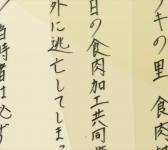 キの里　食肉
日の食肉加工共同販
外に逃亡してしまっ
当時者は必ず